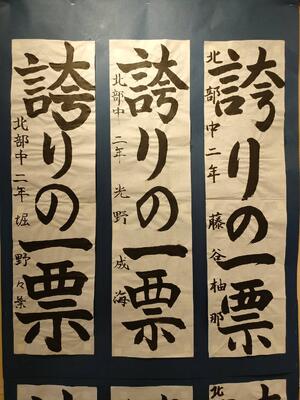 誇りの一票
北部中二年 藤谷柚那
誇りの一票
北部中二年 光野成海
誇りの一票
北部中二年 堀野々葉
北